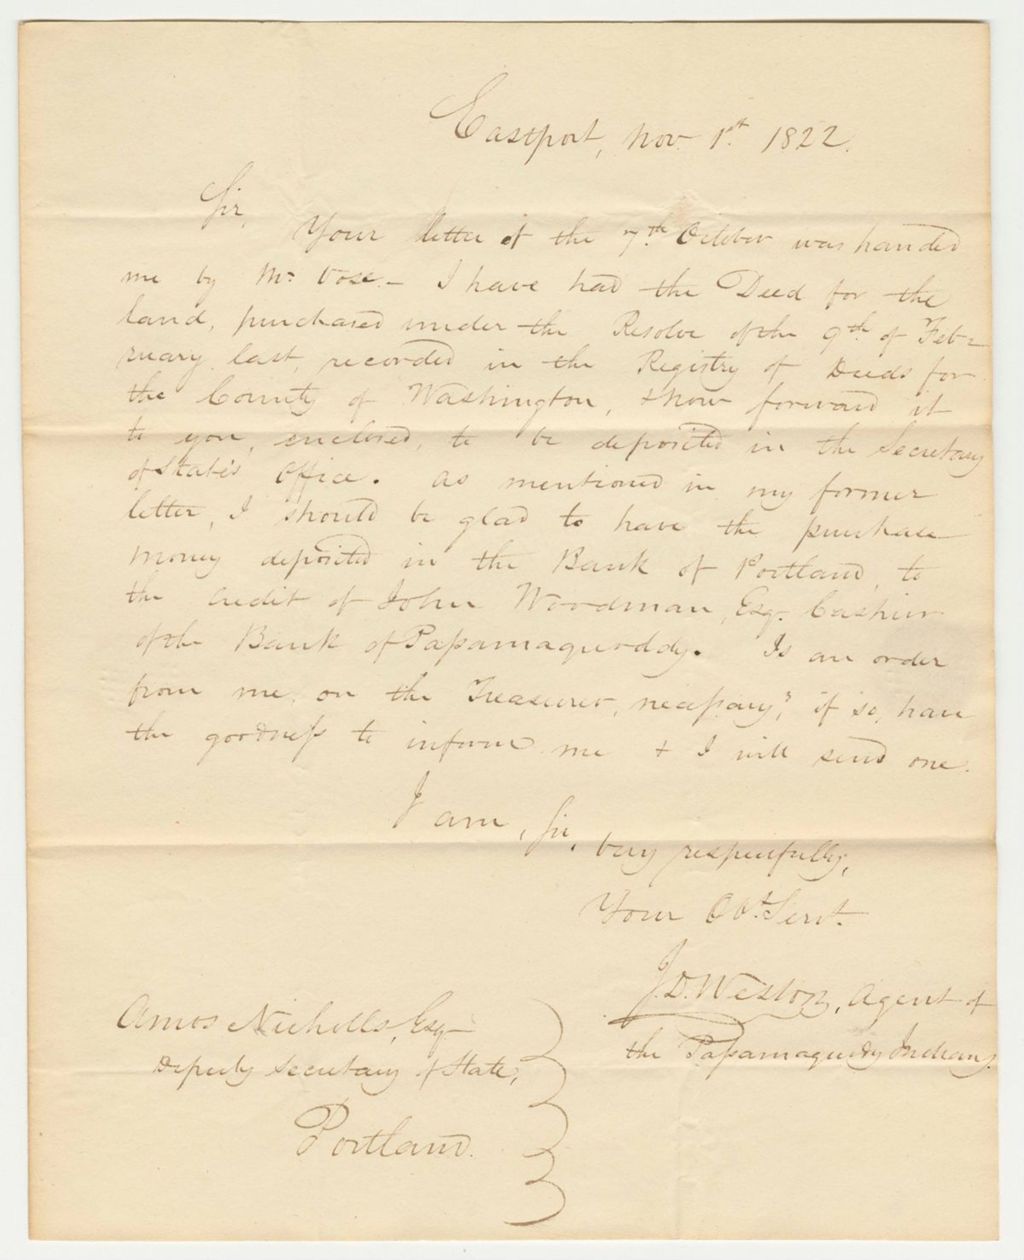 Eastport, Nov 1st 1822.
Sir,
Your letter of the 7th October was handed
me by Mr Vose.- I have had the Deed for the
land, purchased under the Resolve of the 9th of Feb=
ruary last, recorded in the Registry of Deeds for
the County of Washington, & now forward it
to you, enclosed, to be deposited in the Secretary
of State's Office. As mentioned in my former
letter, I should be glad to have the purchase
money deposited in the Bank of Portland, to
the credit of John Woodman, Esq. Cashier
of the Bank of Passamaquoddy. Is an order
from me, on the Treasurer, necessary? if so, have
the goodness to inform me & I will send one.
I am, Sir,
very respectfully,
Your Obt. Servt.
J.D. Weston, Agent of
the Passamaquoddy Indians.
Amos Nicholls, Esq
Deputy Secretary of State,
Portland.